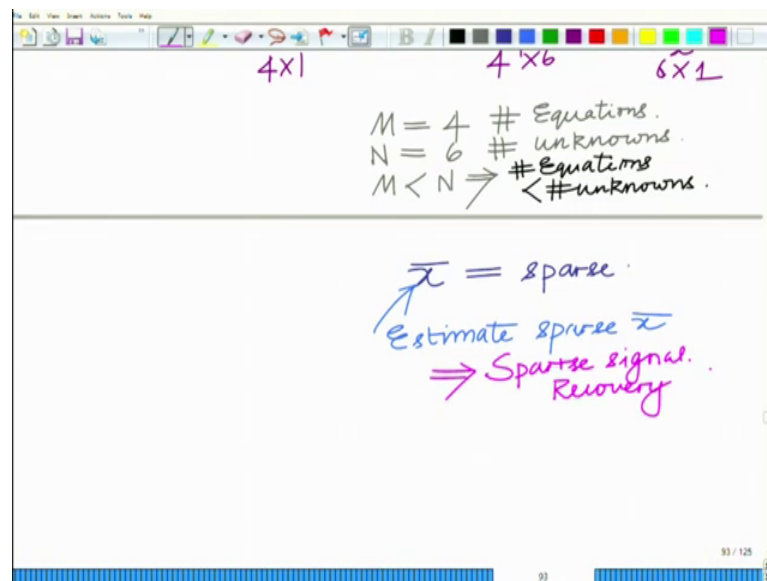 File Edit View Insert Actions Tools Help
B I
4×1 4×6 6×1
M = 4 # Equations.
N = 6 # unknowns.
M < N ⇒ #Equations
< #unknowns.
x̅ = sparse.
Estimate sparse x̅
⇒ Sparse signal.
Recovery
93 / 125
93